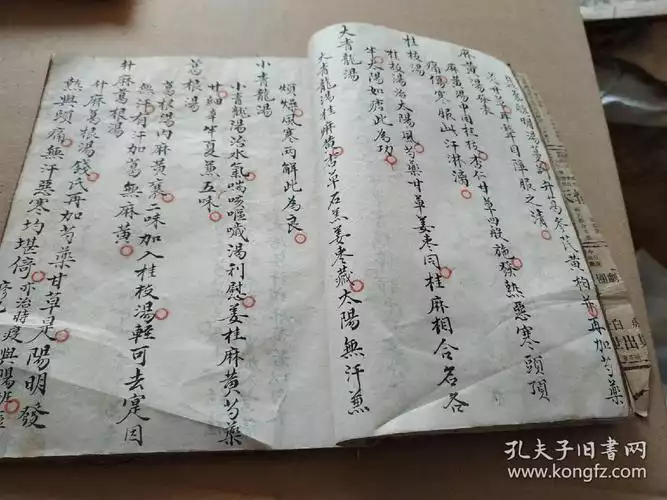 益氣聰明湯蔓荊升葛參芪黃柏並再加芍藥
炙甘草耳目障服之清
麻黃湯發表
麻黃湯中用桂枝杏仁甘草四般施發熱惡寒頭頂
痛傷寒服此汗淋漓
桂枝湯
桂枝湯治太陽風芍藥甘草姜棗同桂麻相合名各
半太陽如瘧此為功
大青龍湯
大青龍湯桂麻黃杏草石羔姜棗藏太陽無汗兼
煩燥風寒兩解此為良
小青龍湯
小青龍湯治水氣喘咳嘔噦湯利慰姜桂麻黃芍藥
甘細辛半夏兼五味
葛根湯
葛根湯內麻黃襄二味加入桂枝湯輕可去寔因
無汗有汗加葛無麻黃
升麻葛根湯
升麻葛根湯錢氏再加芍藥甘草是陽明發
熱與頭痛無汗惡寒均堪倚亦治時疫與陽斑
孔夫子旧书网
www.kongfz.com